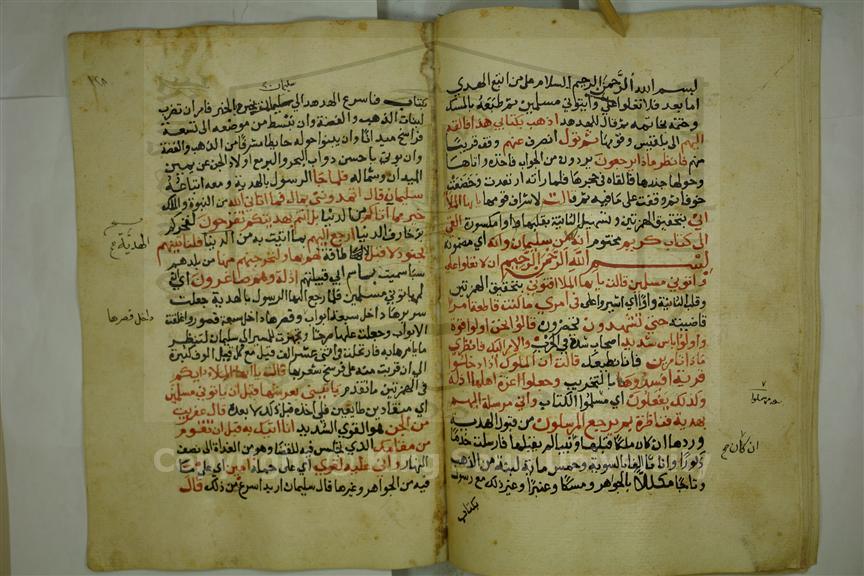 بسم الله الرحمن الرحيم السلام على من اتبع الهدى
اما بعد فلا تعلوا علي وأتوني مسلمين ثم طبعه بالمسك
وختمه بخاتمه ثم قال للهدهد اذهب بكتابي هذا فألقه
اليهم اى بلقيس وقومها ثم تول انصرف عنهم وقف قريبا
منهم فانظر ماذا يرجعون يردون من الجواب فأخذه واتاها
وحولها جندها فألقاه في حجرها فلما رأته ارتعدت وخضعت
خوفا ثم وقفت على ما فيه ثم قالت لاشراف قومها يا ايها الملأ
انى بتحقيق الهمزتين وتسهيل الثانية بقلبها واوا مكسورة القى
الي كتاب كريم مختوم انه من سليمان وانه اى مضمونه
بسم الله الرحمن الرحيم ان لا تعلوا على
وأتونى مسلمين قالت يا ايها الملأ افتونى بتحقيق الهمزتين
وقلب الثانية واوا اى اشيروا على في امرى ما كنت قاطعة امرا
قاضيته حتى تشهدون تحضرون قالوا نحن اولوا قوة
واولوا باس شديد اصحاب شدة في الحرب والامر اليك فانظرى
ماذا تامرين فانا نطيعك قالت ان الملوك اذا دخلوا
قرية افسدوها بالتخريب وجعلوا اعزة اهلها اذلة
وكذلك يفعلون اى مرسلوا الكتاب وانى مرسلة اليهم
بهدية فناظرة بم يرجع المرسلون من قبول الهدية
وردها ان كان ملكا قبلها او نبيا لم يقبلها فارسلت خدما
ذكورا واناثا الفا بالسوية وخمس مائة لبنة من الذهب
وتاجا مكللا بالجواهر ومسكا وعنبرا وغير ذلك مع رسول
بكتاب
ان كان صح
سليمان
بكتاب فاسرع الهدهد الى سليمان يخبره الخبر فامر ان تضرب
لبنات الذهب والفضة وان تبسط من موضعه الى تسعة
فراسخ ميدانا وان يبنوا حوله حائطا مشرفا من الذهب والفضة
وان يوتى باحسن دواب البحر والبر مع اولاد الجن عن يمين
الميدان وشماله فلما جا الرسول بالهدية ومعه اتباعه
سليمان قال اتمدونني بمال فما اتان الله من النبوة والملك
خير مما اتاكم من الدنيا بل انتم بهديتكم تفرحون لفخركم
بزخارف الدنيا ارجع اليهم بما اتيت به من الدنيا فلنأتينهم
بجنود لا قبل لا طاقة لهم بها ولنخرجنهم منها من بلدهم
سبأ سميت باسم ابى قبيلتهم اذلة وهم صاغرون اى ان
لم يأتونى مسلمين فلما رجع اليها الرسول بالهدية جعلت
سريرها داخل سبعة ابواب وقصرها داخل سبعة قصور واغلقت
الابواب وجعلت عليها حرسا وتجهزت للمسير الى سليمان لتنظر
ما يأمرها به فارتحلت في اثنى عشر الف قيل مع كل قيل الوف كثيرة
الى ان قربت منه على فرسخ شعر بها قال يا ايها الملأ ايكم
في الهمزتين ما تقدم يأتينى بعرشها قبل ان ياتونى مسلمين
اى منقادين طايعين فلى اخذه قبل ذلك لا بعده قال عفريت
من الجن هو القوى الشديد انا اتيك به قبل ان تقوم
من مقامك الذى تجلس فيه للقضا وهو من الغداة الى نصف
النهار وانى عليه لقوى اى على حمله امين اى على ما
فيه من الجواهر وغيرها قال سليمان اريد اسرع من ذلك قال
الهدية صح
داخل قصرها